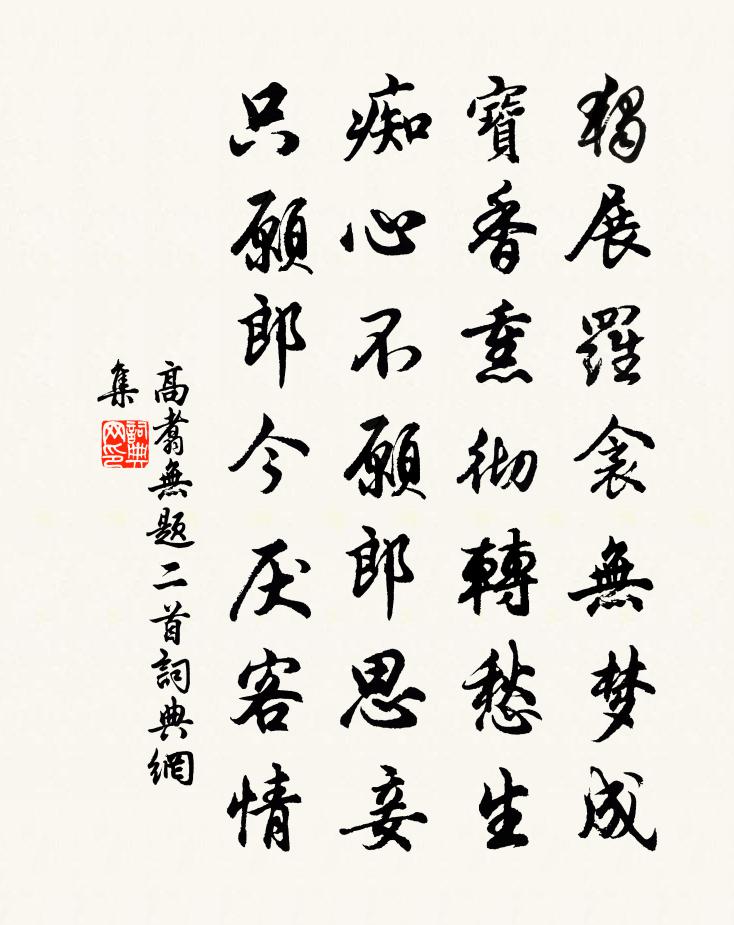 獨展羅衾無梦成
寶香熏彻轉愁生
痴心不願郎思妾
只願郎今厌客情
高翥無題二首詞典網
集
詞典网印